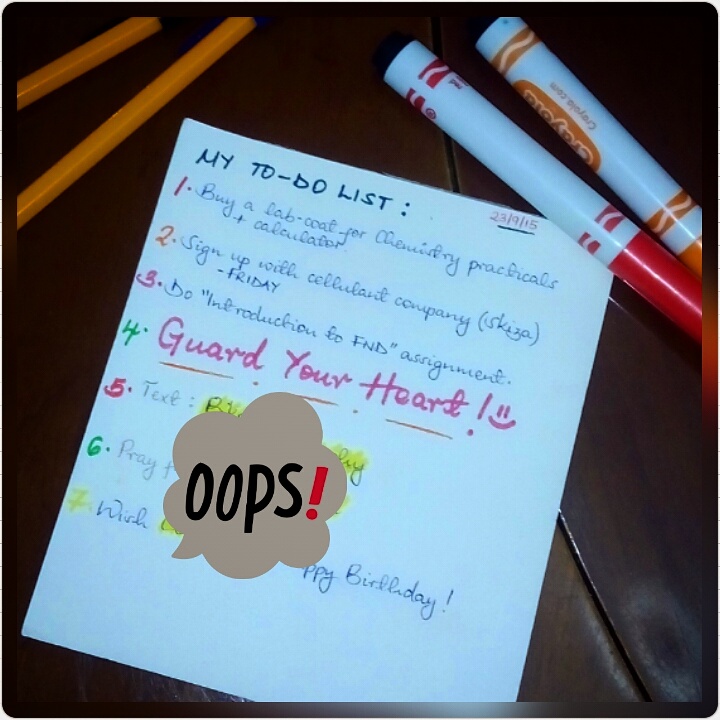 MY TO-DO LIST :
23/9/15
1. Buy a lab-coat for Chemistry practicals
+ calculator.
2. Sign up with cellulant company (Skiza)
-FRIDAY
3. Do "Introduction to FND" assignment.
4. Guard Your Heart !
5. Text :
6. Pray
7. Wish
OOPS!
ppy Birthday !
Crayola
Crayola.com